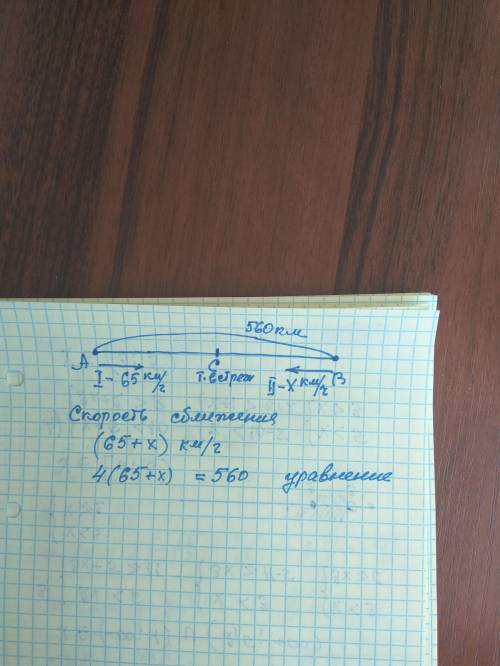 560 км
A C B
I - 65 км/г т. встреч II - x км/г
Скорость сближения
(65+x) км/г
4(65+x) = 560 уравнение